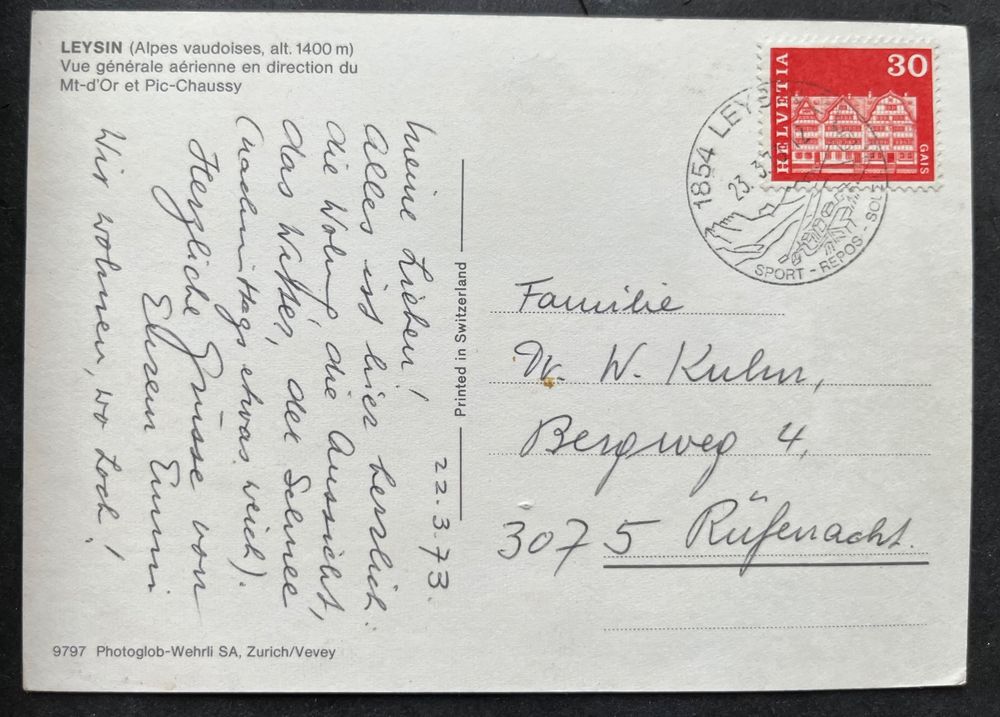 LEYSIN (Alpes vaudoises, alt. 1400 m)
Vue générale aérienne en direction du
Mt-d'Or et Pic-Chaussy
22.3.73.
Meine Lieben!
Alles ist hier herrlich:
die Wohng, die Aussicht,
das Wetter, der Schnee
(nachmittags etwas weich).
Herzliche Grüsse von
Eurem Emmi
Wir wohnen, wo Loch!
9797 Photoglob-Wehrli SA, Zurich/Vevey
Printed in Switzerland
HELVETIA
30
GAIS
1854 LEYSIN
23.3.73
SPORT - REPOS - SOLEIL
Familie
Dr. W. Kuhn,
Bergweg 4,
3075 Rüfenacht.